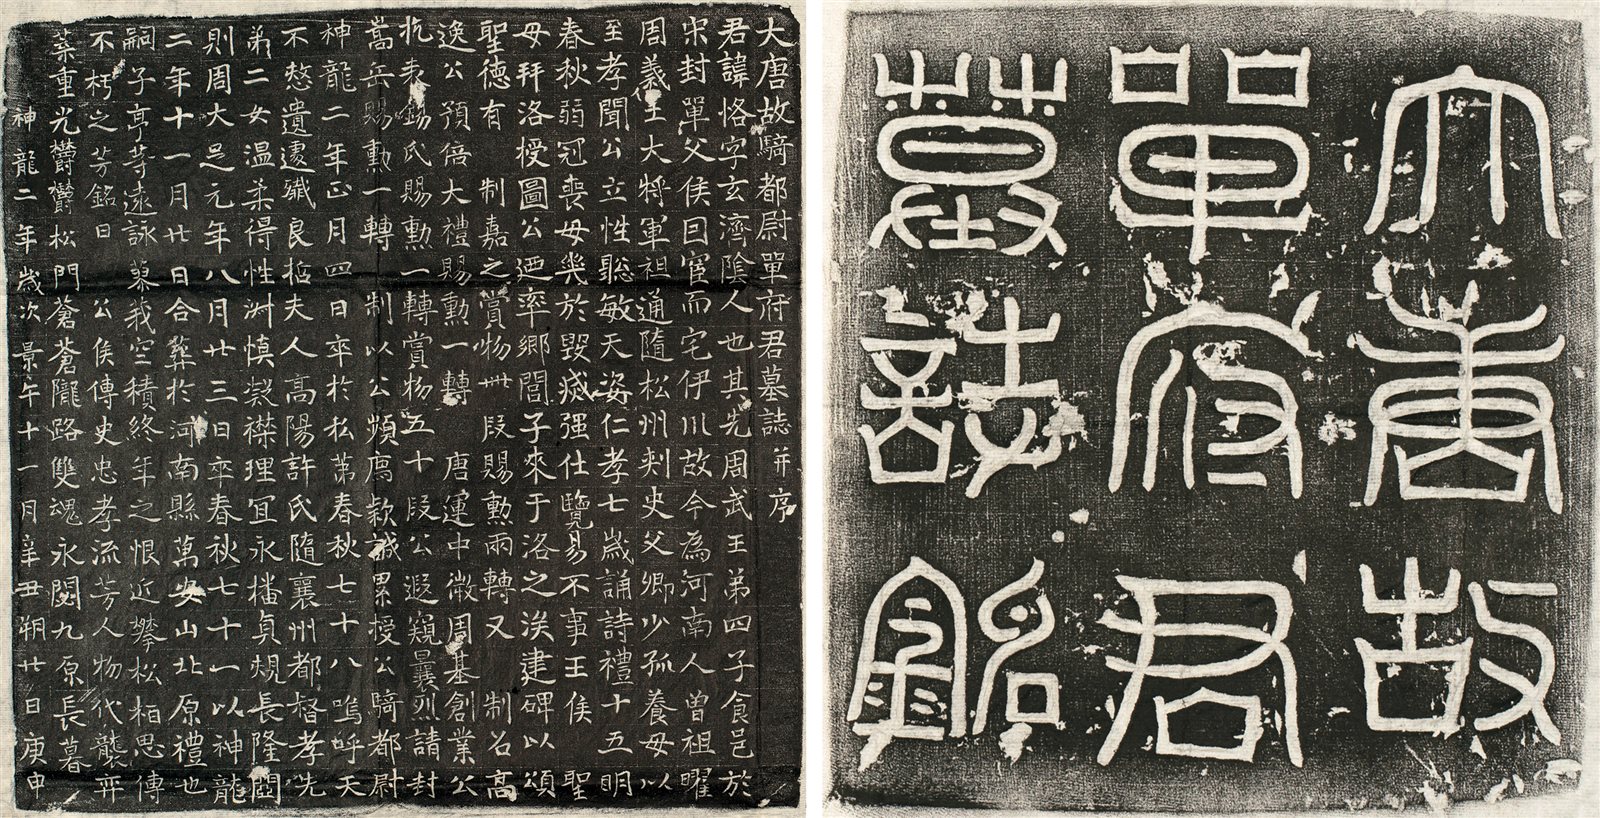 大唐故
單府君
墓誌銘
大唐故騎都尉單府君墓誌并序
君諱恪字玄濟陰人也其先周武王弟四子食邑於
宋封單父侯回宦而宅伊川故今為河南人曾祖曜
周義主大將軍祖通隨松州刾史父卿少孤養母以
至孝聞公立性聡敏天姿仁孝七歲誦詩禮十五明
春秋弱冠喪母幾於毀烕强仕覽易不事王侯 聖
母拜洛授圖公廼率鄉閭子來于洛之涘建碑以頌
聖德有 制嘉之賞物卅叚賜勲兩轉又 制召高
逸公預倍大禮賜勲一轉 唐運中微周基創業公
抗表錫氏賜勲一轉賞物五十叚公遐窺曩烈請封
嵩岳賜勲一轉制以公頻膺款誠累授公騎都尉
神龍二年正月四日卒於私第春秋七十八嗚呼天
不憗遺遽殲良哲夫人高陽許氏隨襄州都督孝先
弟二女温柔得性渊慎襟理宜永播貞規長隆閫
則周大足元年八月廿三日卒春秋七十一以神龍
二年十一月廿日合葬於河南縣萬安山北原禮也
嗣子亭等遠詠蓼莪空積終年之恨近攀松栢思傳
不朽之芳銘曰 公侯傳史忠孝流芳人物代襲弈
葉重光欝欝松門蒼蒼隴路雙魂永閟九原長暮
神龍二年歲次景午十一月辛丑朔廿日庚申